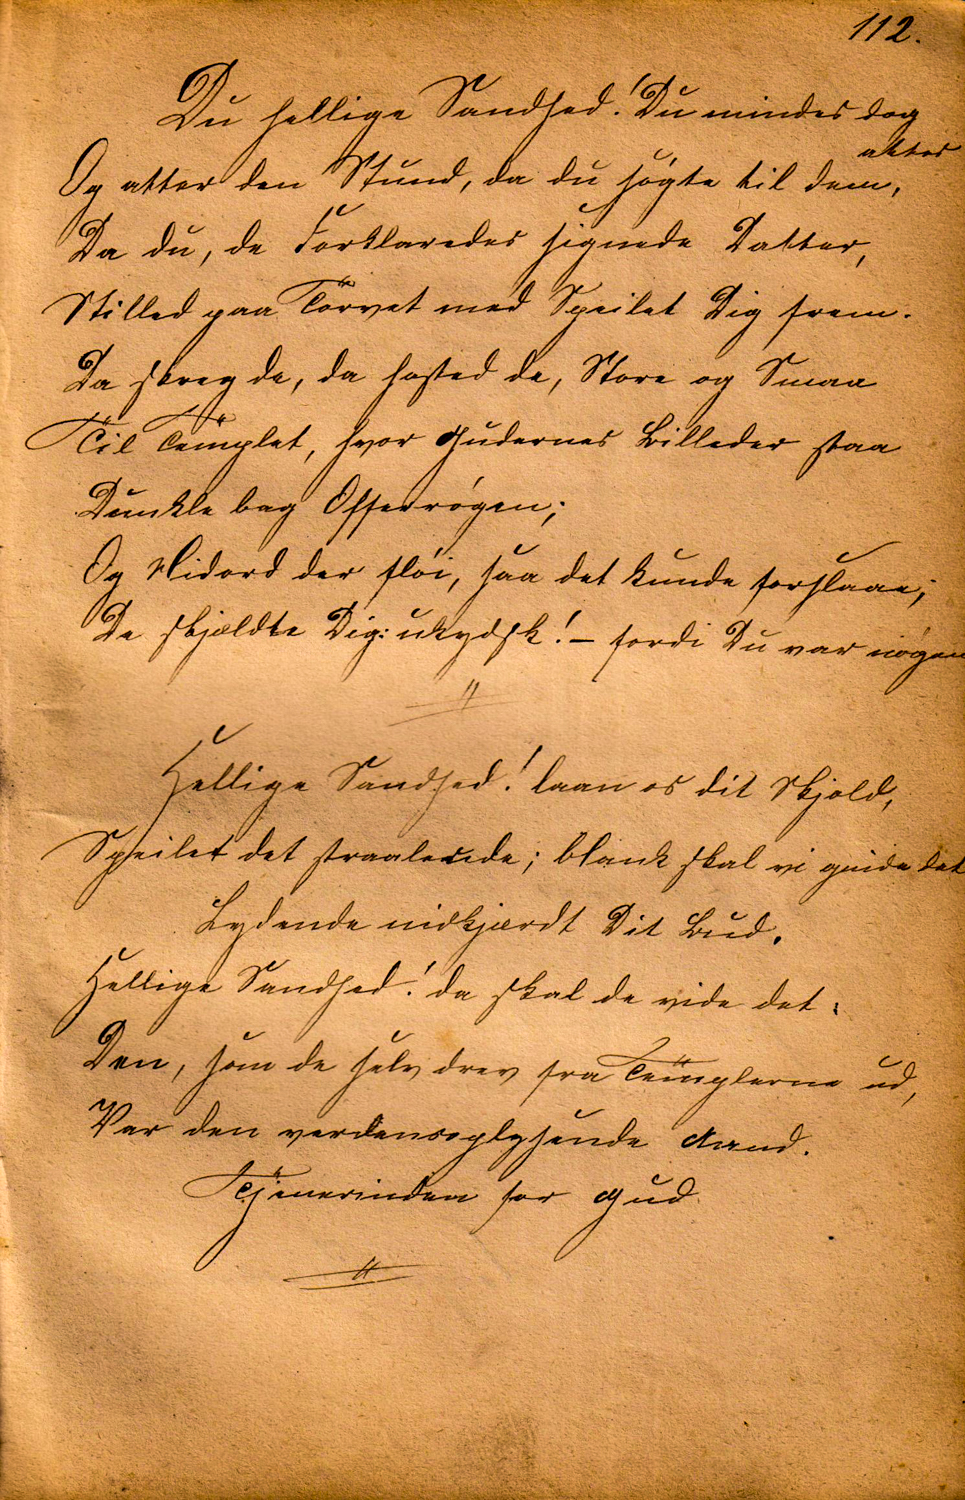 112.
Du hellige Sandhed! Du mindes dog
atter
Og atter den Stund, da du søgte til dem,
Da du, de Forklaredes signede Datter,
Stilled paa Torvet med Speilet Dig frem.
Da skreg de, da hasted de, Store og Smaa
Til Templet, hvor Gudernes Billeder staa
Dunkle bag Offerrøgen;
Og Nidord der fløi, saa det kunde forslaae;
De skjældte Dig: ukydsk! – fordi Du var nøgen
Hellige Sandhed! laan os dit Skjold,
Speilet det straalende; blank skal vi gnide det
Lydende nidkjærdt Dit Bud.
Hellige Sandhed! da skal de vide det:
Den, som de selv drev fra Templerne ud,
Var den verdensoplysende Aand.
Tjenerinden for Gud